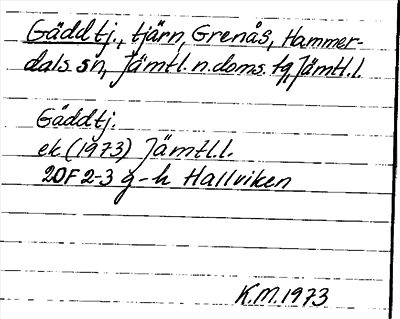 Gäddtj., tjärn, Grenås, Hammer-
dals sn, Jämtl. n. doms. tg, Jämtl.l.
Gäddtj.
ek (1973) Jämtl.l.
20F 2-3 g-h Hallviken
K.M. 1973